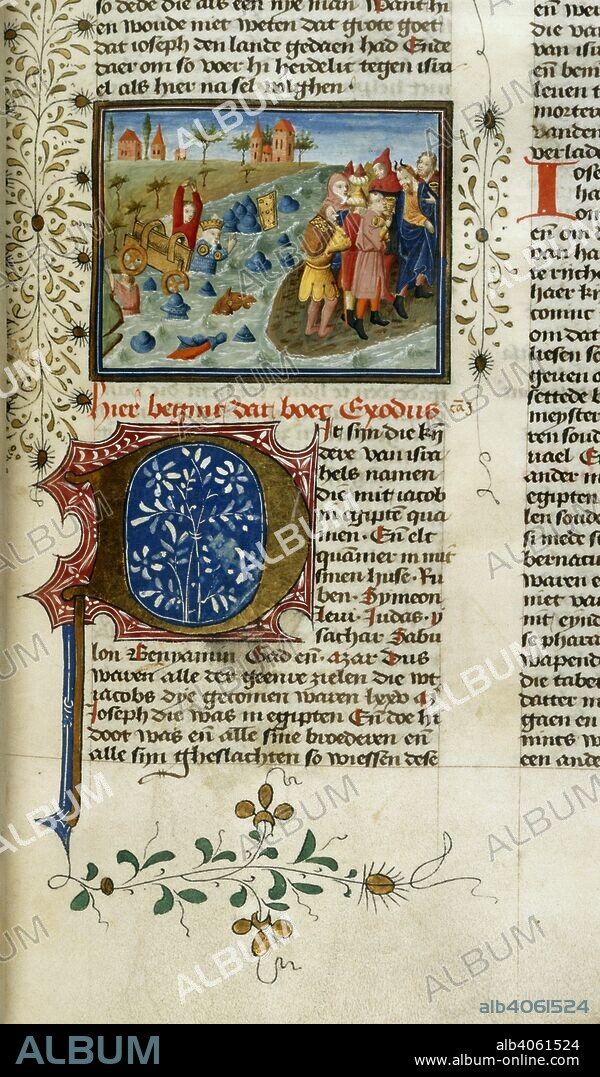 so dede die als een nye man Want hi
en woude niet weten dat grote goet
dat ioseph den lande gedaen had Ende
daer om so voer hi herdelic tegen isra
el als hier na sel volghen
hier begint dat boec Exodus
Dit sijn die kin
dere van isra
hels namen
die mit iacob
in egipten qua
men. En elt
quamer in mit
sinen huse. Ru
ben. Symeon
leui. Iudas. y
sachar Zabu
lon Benyamin Gad en. azar Dus
waren alle der geenre zielen die wt
iacobs dye gecomen waren lxxv
Ioseph die was in egipten En doe hi
doot was en alle sine broederen en
alle sijn gheslachten so wiessen dese
die va
van isra
en bem
leuen t
morter
vanden
verlade
Iose
en om d
van ha
haer ki
comit
om dat
liesen so
geuen o
settede
meyster
ren soud
ander m
egipten
len soude
si mede s
bernatu
waren e
niet va
mit eynd
se phara
wapend
die tabe
datter m
gaen en
een ande
ALBUM
alb4061524
ALBUM
alb4061524
www.album-online.com